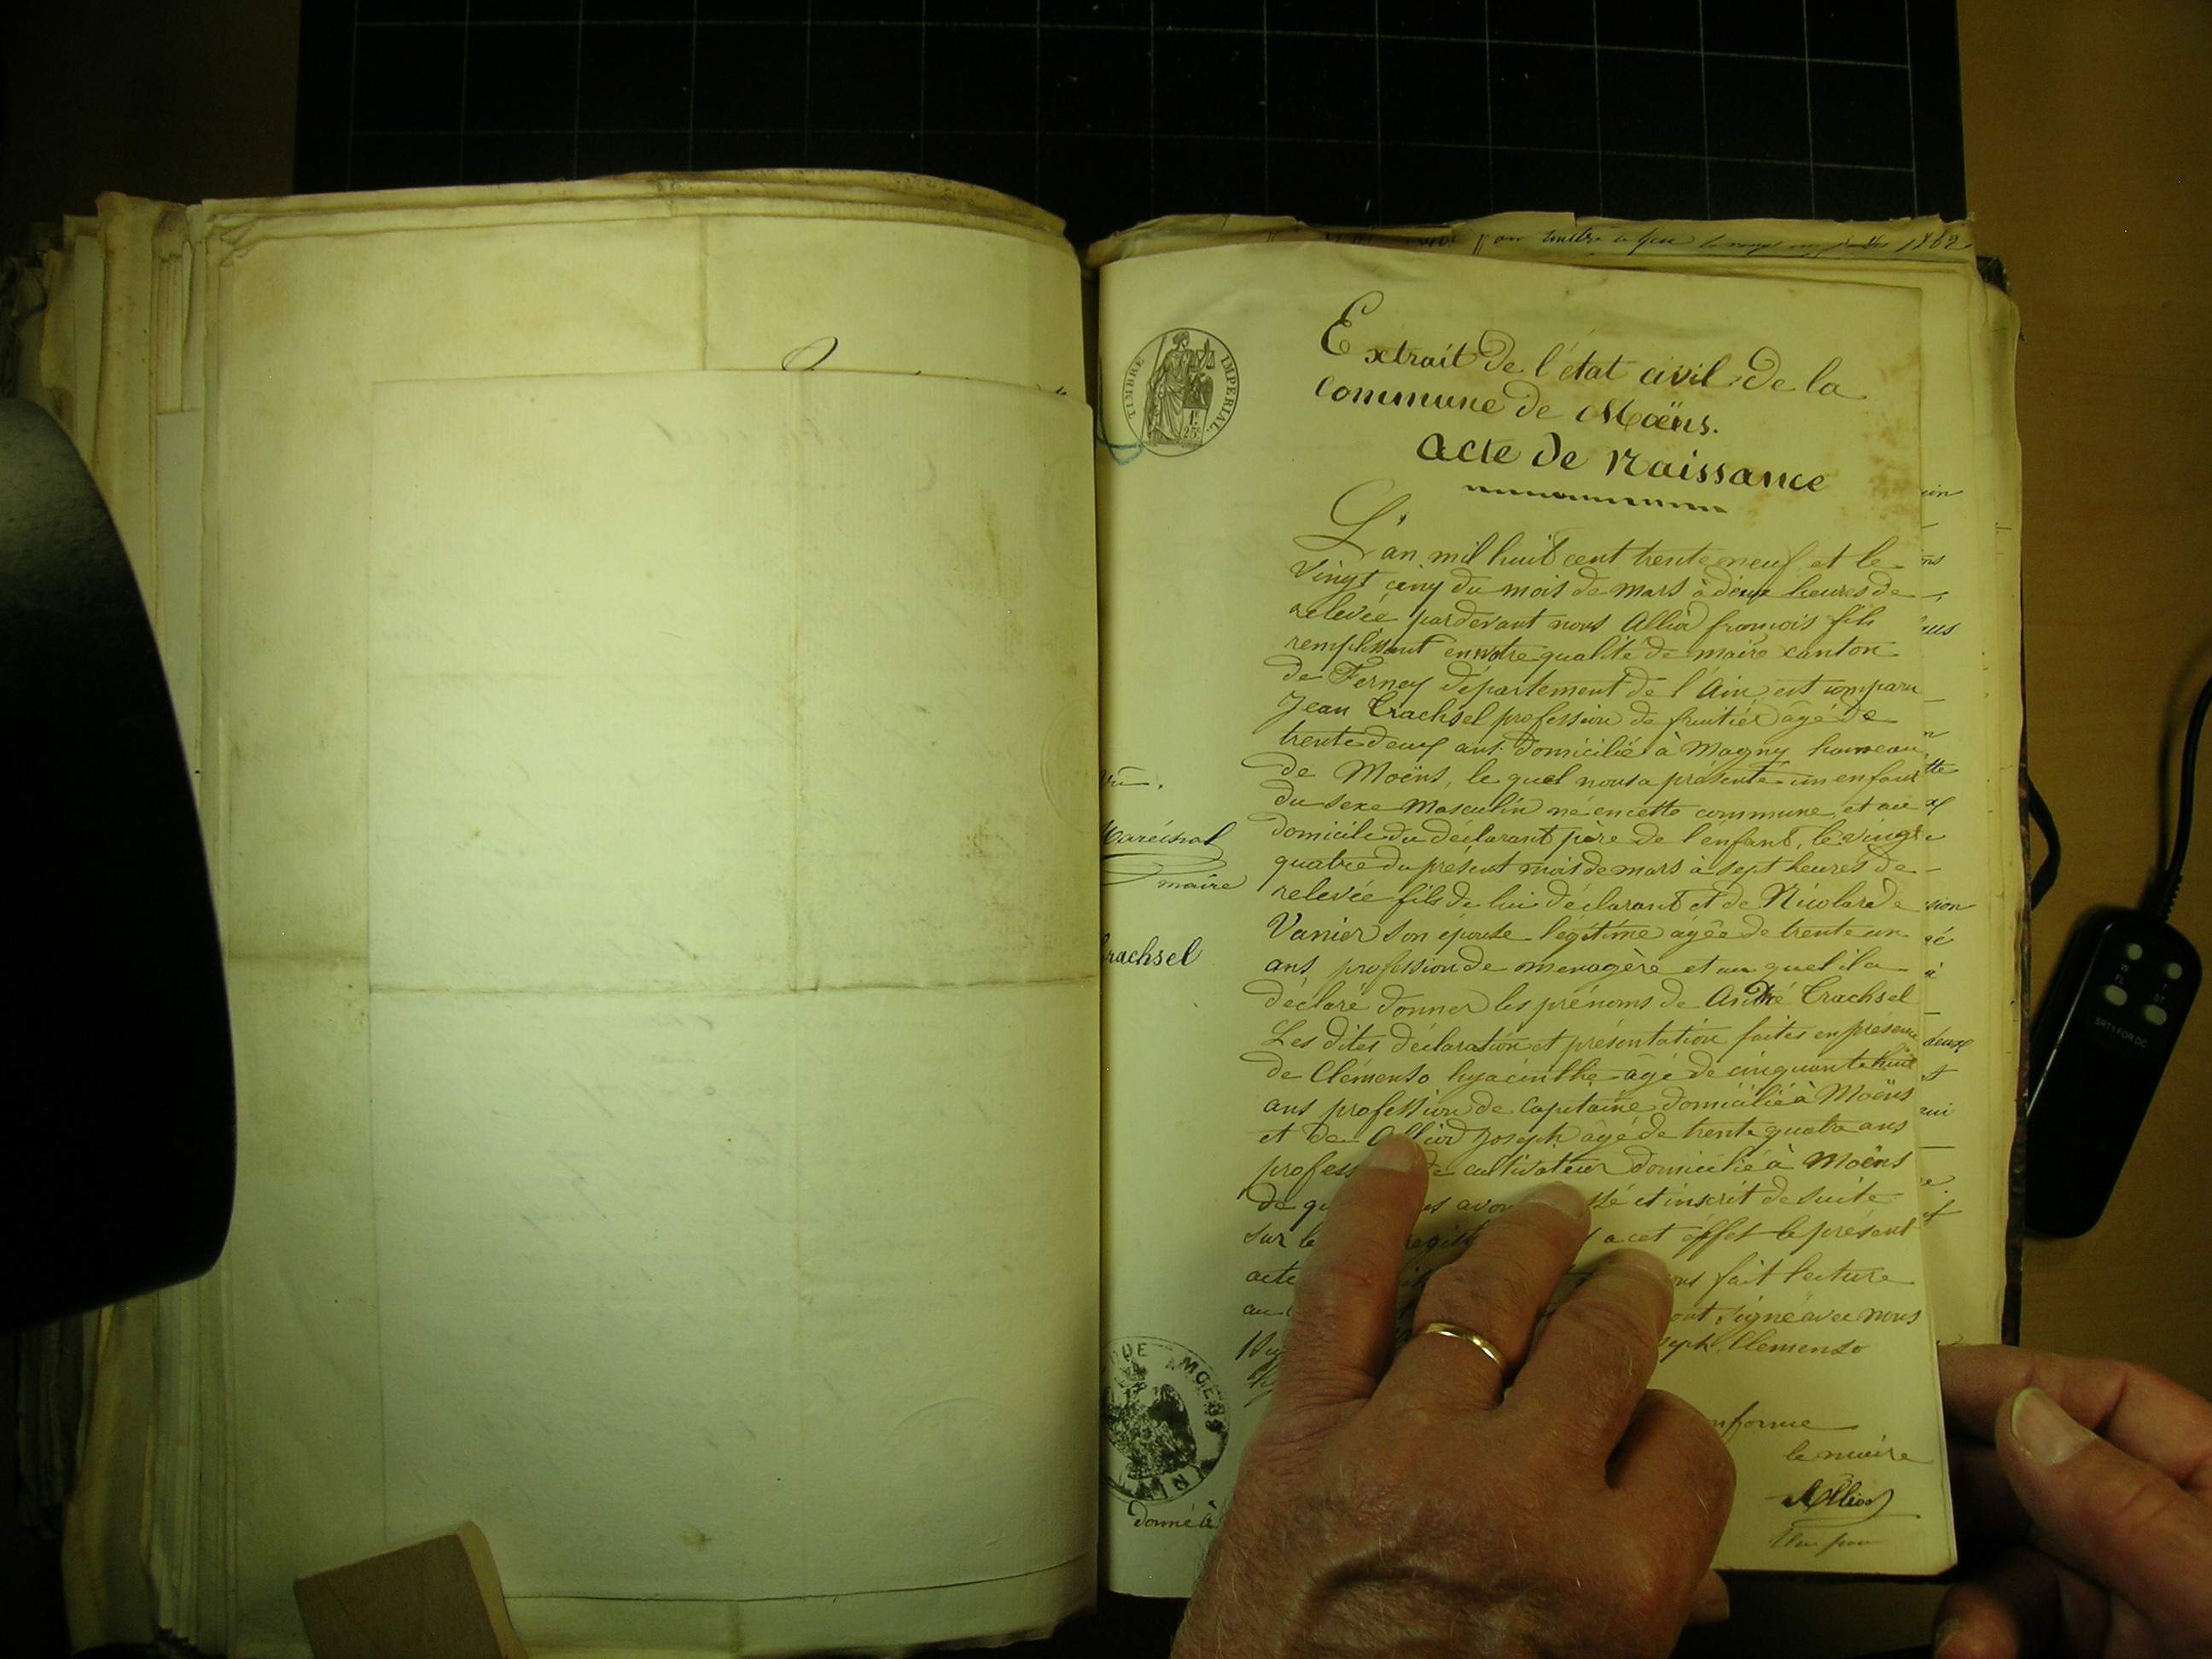 1862
Extrait de l'état civil de la
commune de Moëns.
Acte de Naissance
TIMBRE IMPERIAL
1F.
25c
L'an mil huit cent trente neuf et le
vingt cinq du mois de mars à deux heures de
relevée pardevant nous Alliod françois fils
remplissant en notre qualité de maire canton
de Ferney département de l'Ain est comparu
Jean Trachsel profession de fruitier âgé de
trente deux ans domicilié à Magny hameau
de Moëns, le quel nous a présenté un enfant
du sexe Masculin né en cette commune, et au
domicile du déclarant père de l'enfant, le vingt
quatre du présent mois de mars à sept heures de
relevée fils de lui déclarant et de Nicolarde
Vanier son épouse légitime âgée de trente un
ans profession de menagère et au quel il a
déclaré donner les prénoms de André Trachsel
Les dites déclaration et présentation faites en présence
de Clemenso hyacinthe âgé de cinquante huit
ans profession de Capitaine domicilié à Moëns
et de Alliod Joseph âgé de trente quatre ans
profess de cultivateur domicilié à Moëns
de qu avon et inscrit de suite
sur le regist a cet effet le présent
acte fait lecture
au ont signé avec nous
Clemenso
nforme
le maire
Alliod
Vu.
Maréchal
maire
rachsel
DE MOENS
donné à